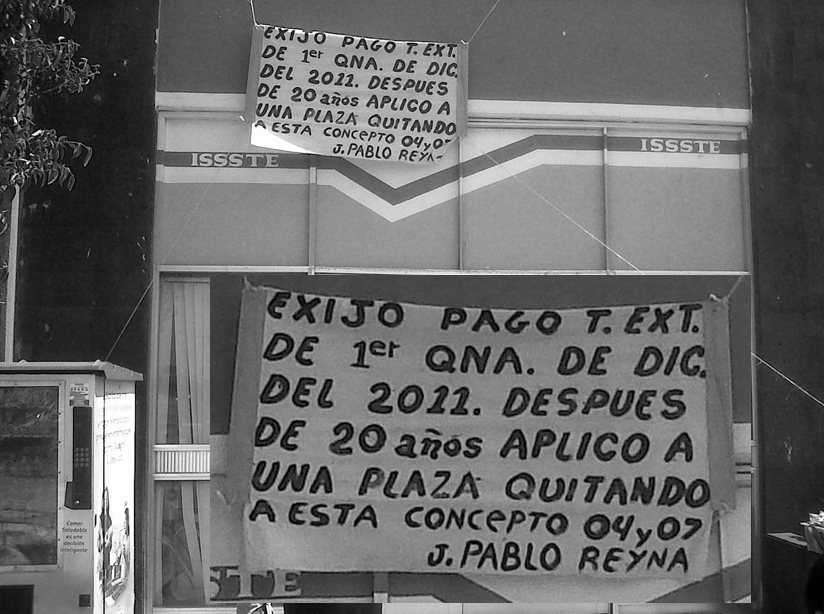 EXIJO PAGO T. EXT.
DE 1er QNA. DE DIC.
DEL 2011. DESPUES
DE 20 años APLICO A
UNA PLAZA QUITANDO
A ESTA CONCEPTO 04 y 07
J. PABLO REYNA
ISSSTE
ISSSTE
EXIJO PAGO T. EXT.
DE 1er QNA. DE DIC.
DEL 2011. DESPUES
DE 20 años APLICO A
UNA PLAZA QUITANDO
A ESTA CONCEPTO 04 y 07
J. PABLO REYNA
Comer
Saludable
es una
decisión
inteligente
STE